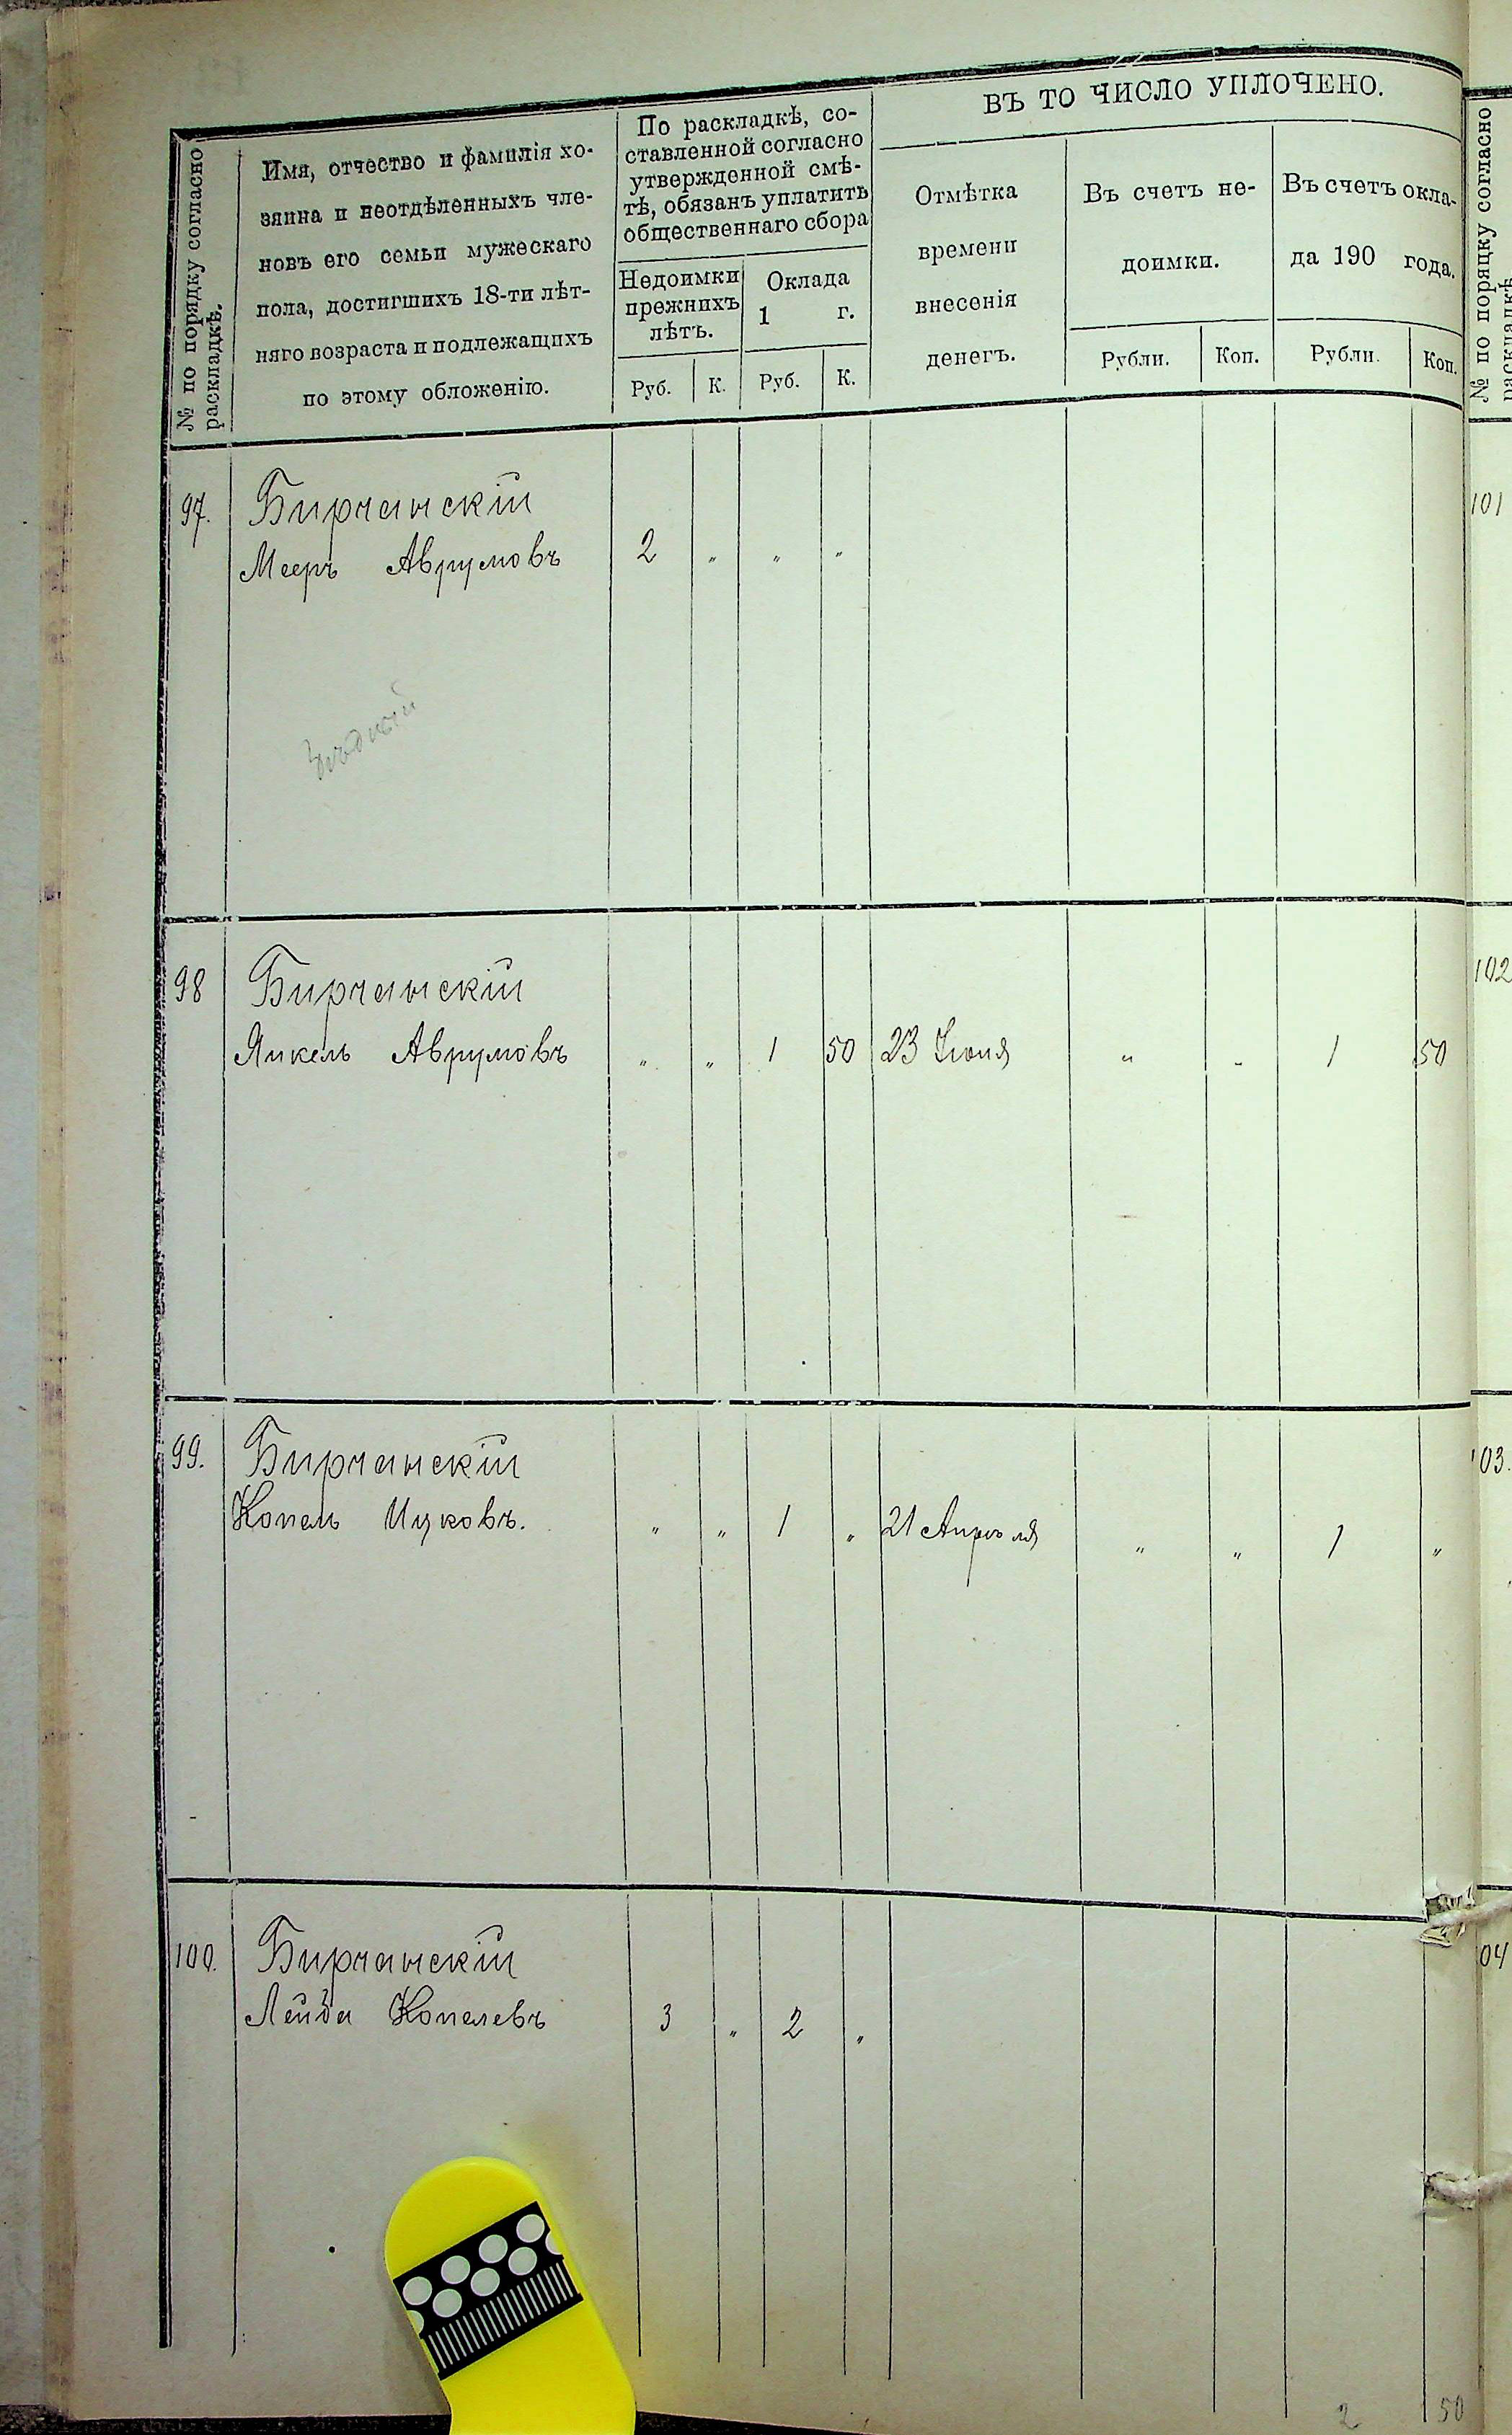 № по порядку согласно
раскладкѣ.
Имя, отчество и фамилія хо-
зяина и неотдѣленныхъ чле-
новъ его семьи мужескаго
пола, достигшихъ 18-ти лѣт-
няго возраста и подлежащихъ
по этому обложенію.
По раскладкѣ, со-
ставленной согласно
утвержденной смѣ-
тѣ, обязанъ уплатить
общественнаго сбора
Недоимки
прежнихъ
лѣтъ.
Оклада
1 г.
Руб. К. Руб. К.
ВЪ ТО ЧИСЛО УПЛОЧЕНО.
Отмѣтка
времени
внесенія
денегъ.
Въ счетъ не-
доимки.
Рубли. Коп.
Въ счетъ окла-
да 190 года.
Рубли. Коп.
97. Бирчанскій
Мееръ Аврумовъ 2 „ „ „
98 Бирчанскій
Янкель Аврумовъ „ „ 1 50 23 Іюня „ „ 1 50
99. Бирчанскій
Копель Ицковъ. „ „ 1 „ 21 Апрѣля „ „ 1 „
100. Бирчанскій
Лейба Копелевъ 3 „ 2 „
2 50
№ по порядку согласно
раскладкѣ
101
102
103.
04